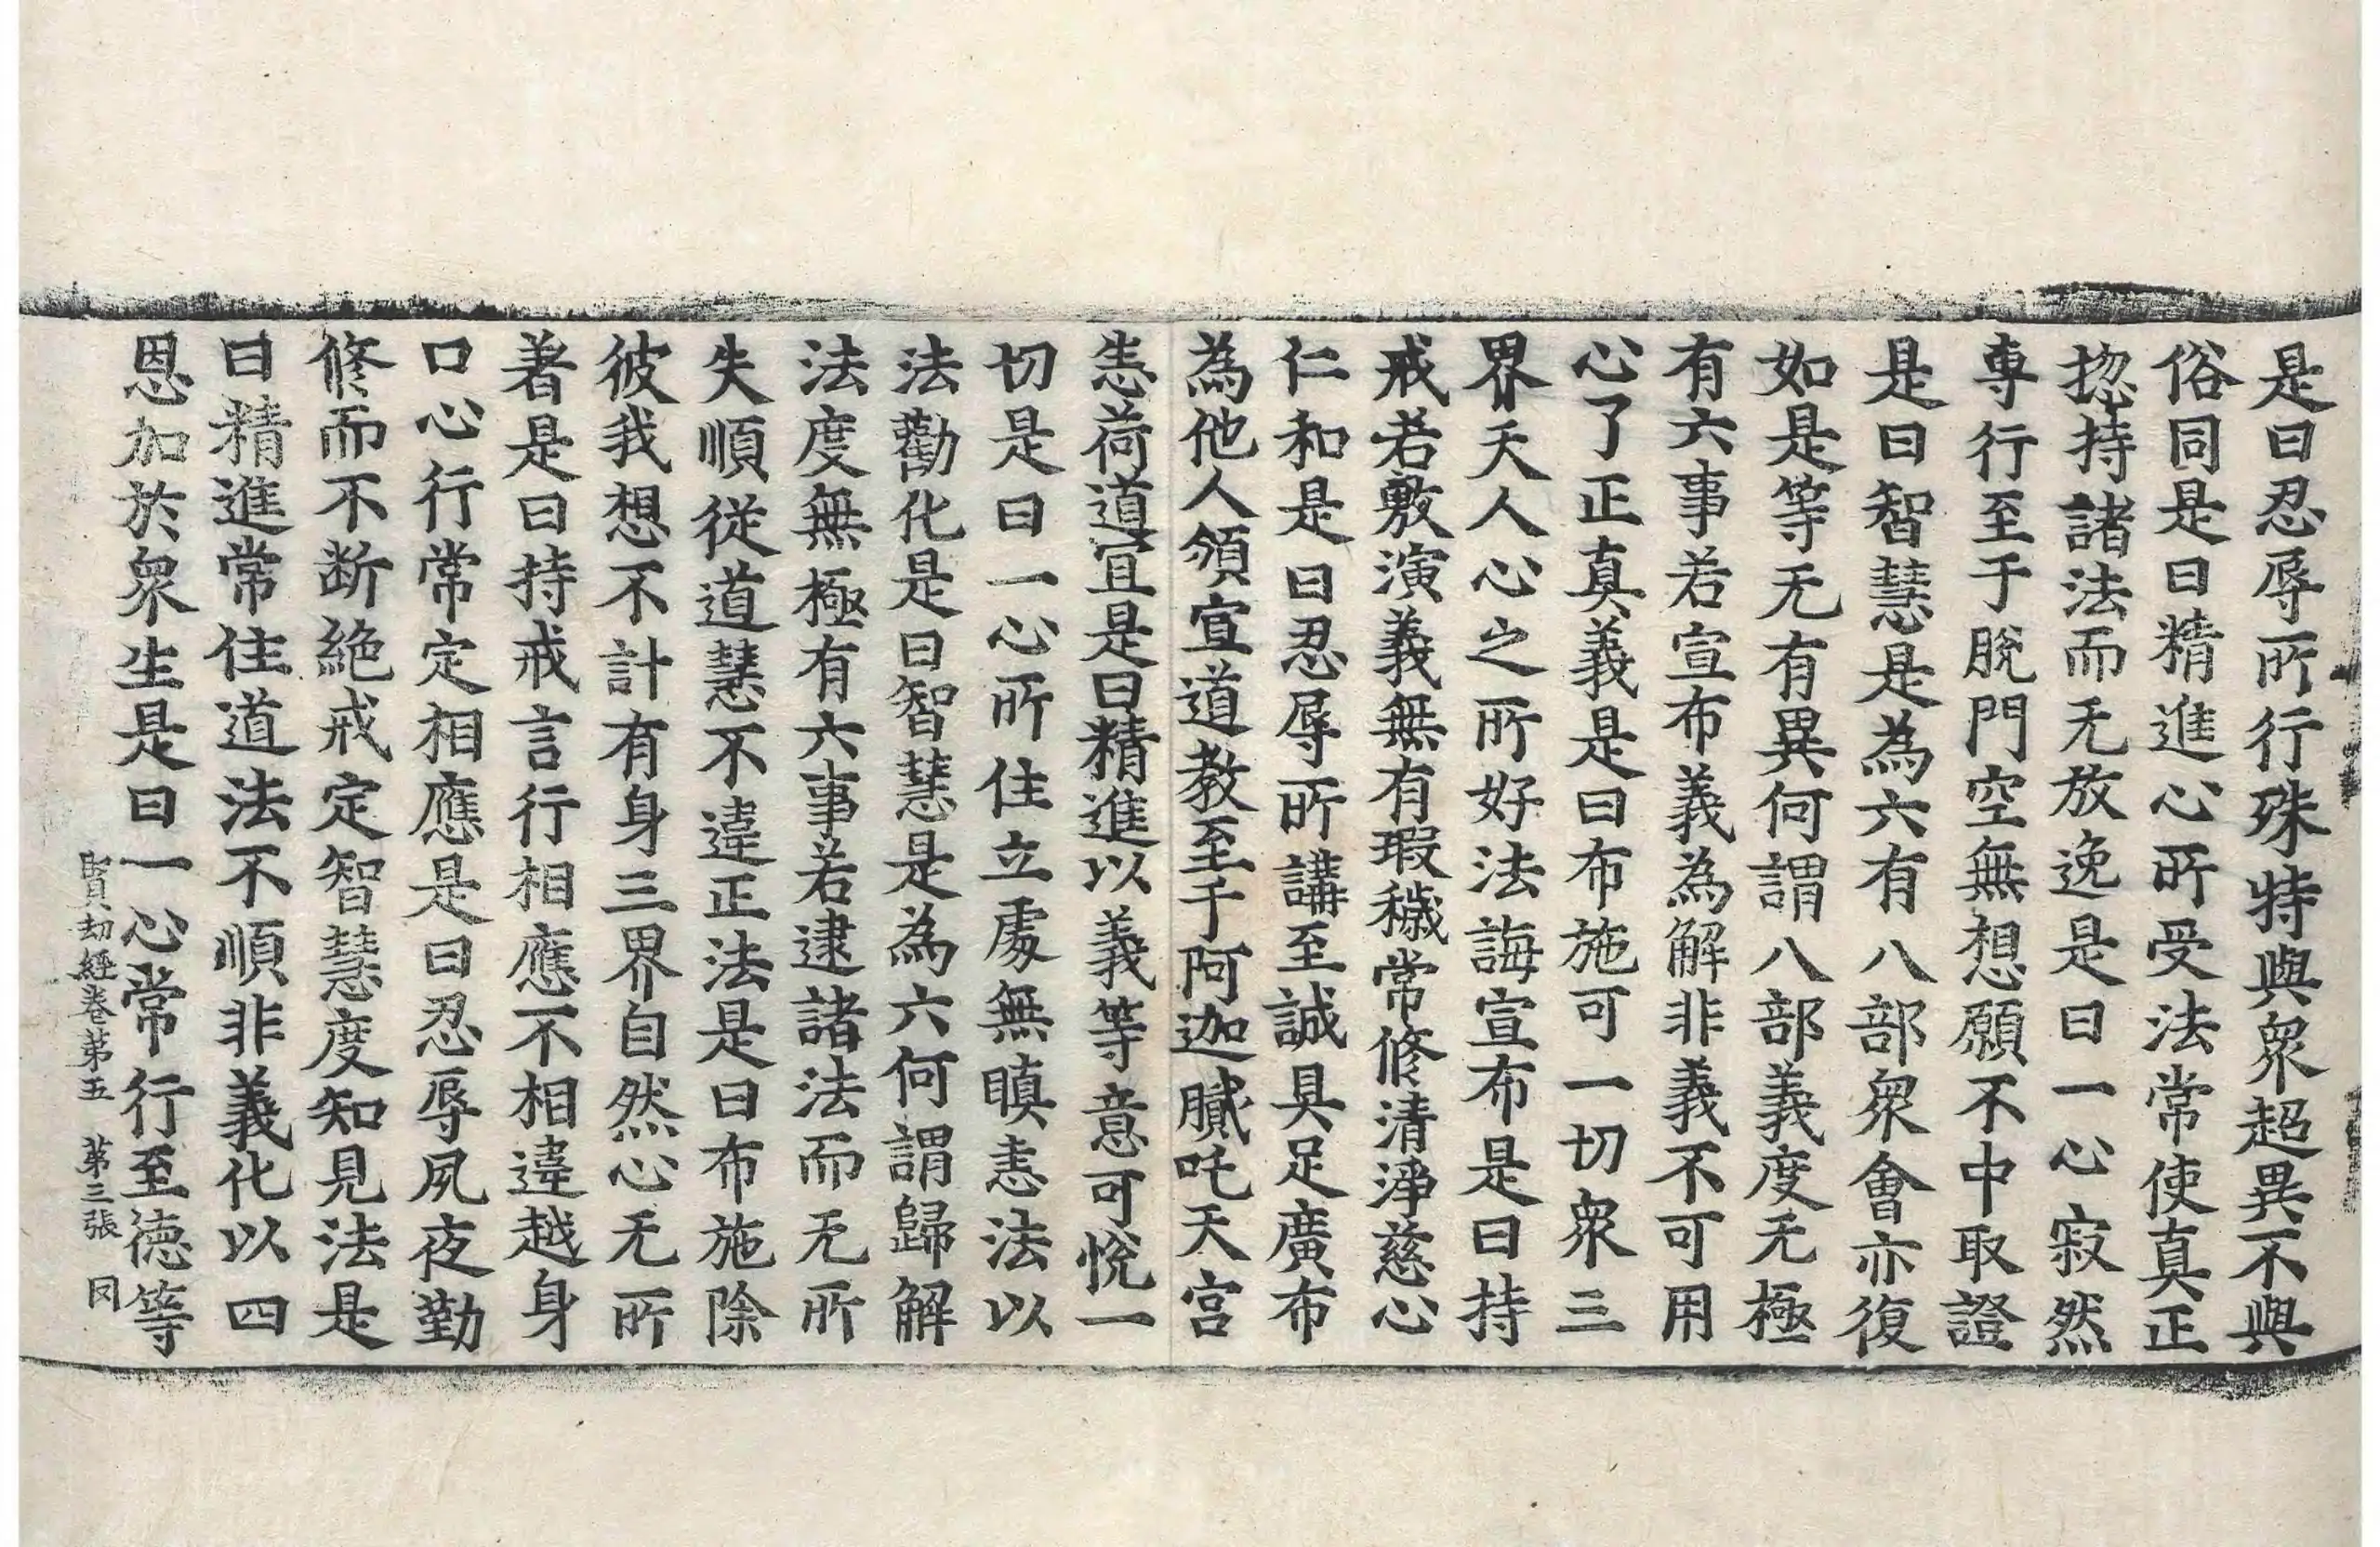 是曰忍辱所行殊特與衆超異不與
俗同是曰精進心所受法常使真正
揔持諸法而无放逸是曰一心寂然
專行至于脫門空無想願不中取證
是曰智慧是為六有八部衆會亦復
如是等无有異何謂八部義度无極
有六事若宣布義為解非義不可用
心了正真義是曰布施可一切衆三
界天人心之所好法誨宣布是曰持
戒若敷演義無有瑕穢常修清淨慈心
仁和是曰忍辱所講至誠具足廣布
為他人領宣道教至于阿迦膩吒天宮
恙荷道宜是曰精進以義等意可悅一
切是曰一心所住立處無瞋恚法以
法勸化是曰智慧是為六何謂歸解
法度無極有六事若逮諸法而无所
失順從道慧不違正法是曰布施除
彼我想不計有身三界自然心无所
著是曰持戒言行相應不相違越身
口心行常定相應是曰忍辱夙夜勤
修而不斷絕戒定智慧度知見法是
曰精進常住道法不順非義化以四
恩加於衆生是曰一心常行至德等
賢劫經卷第五　第三張　同